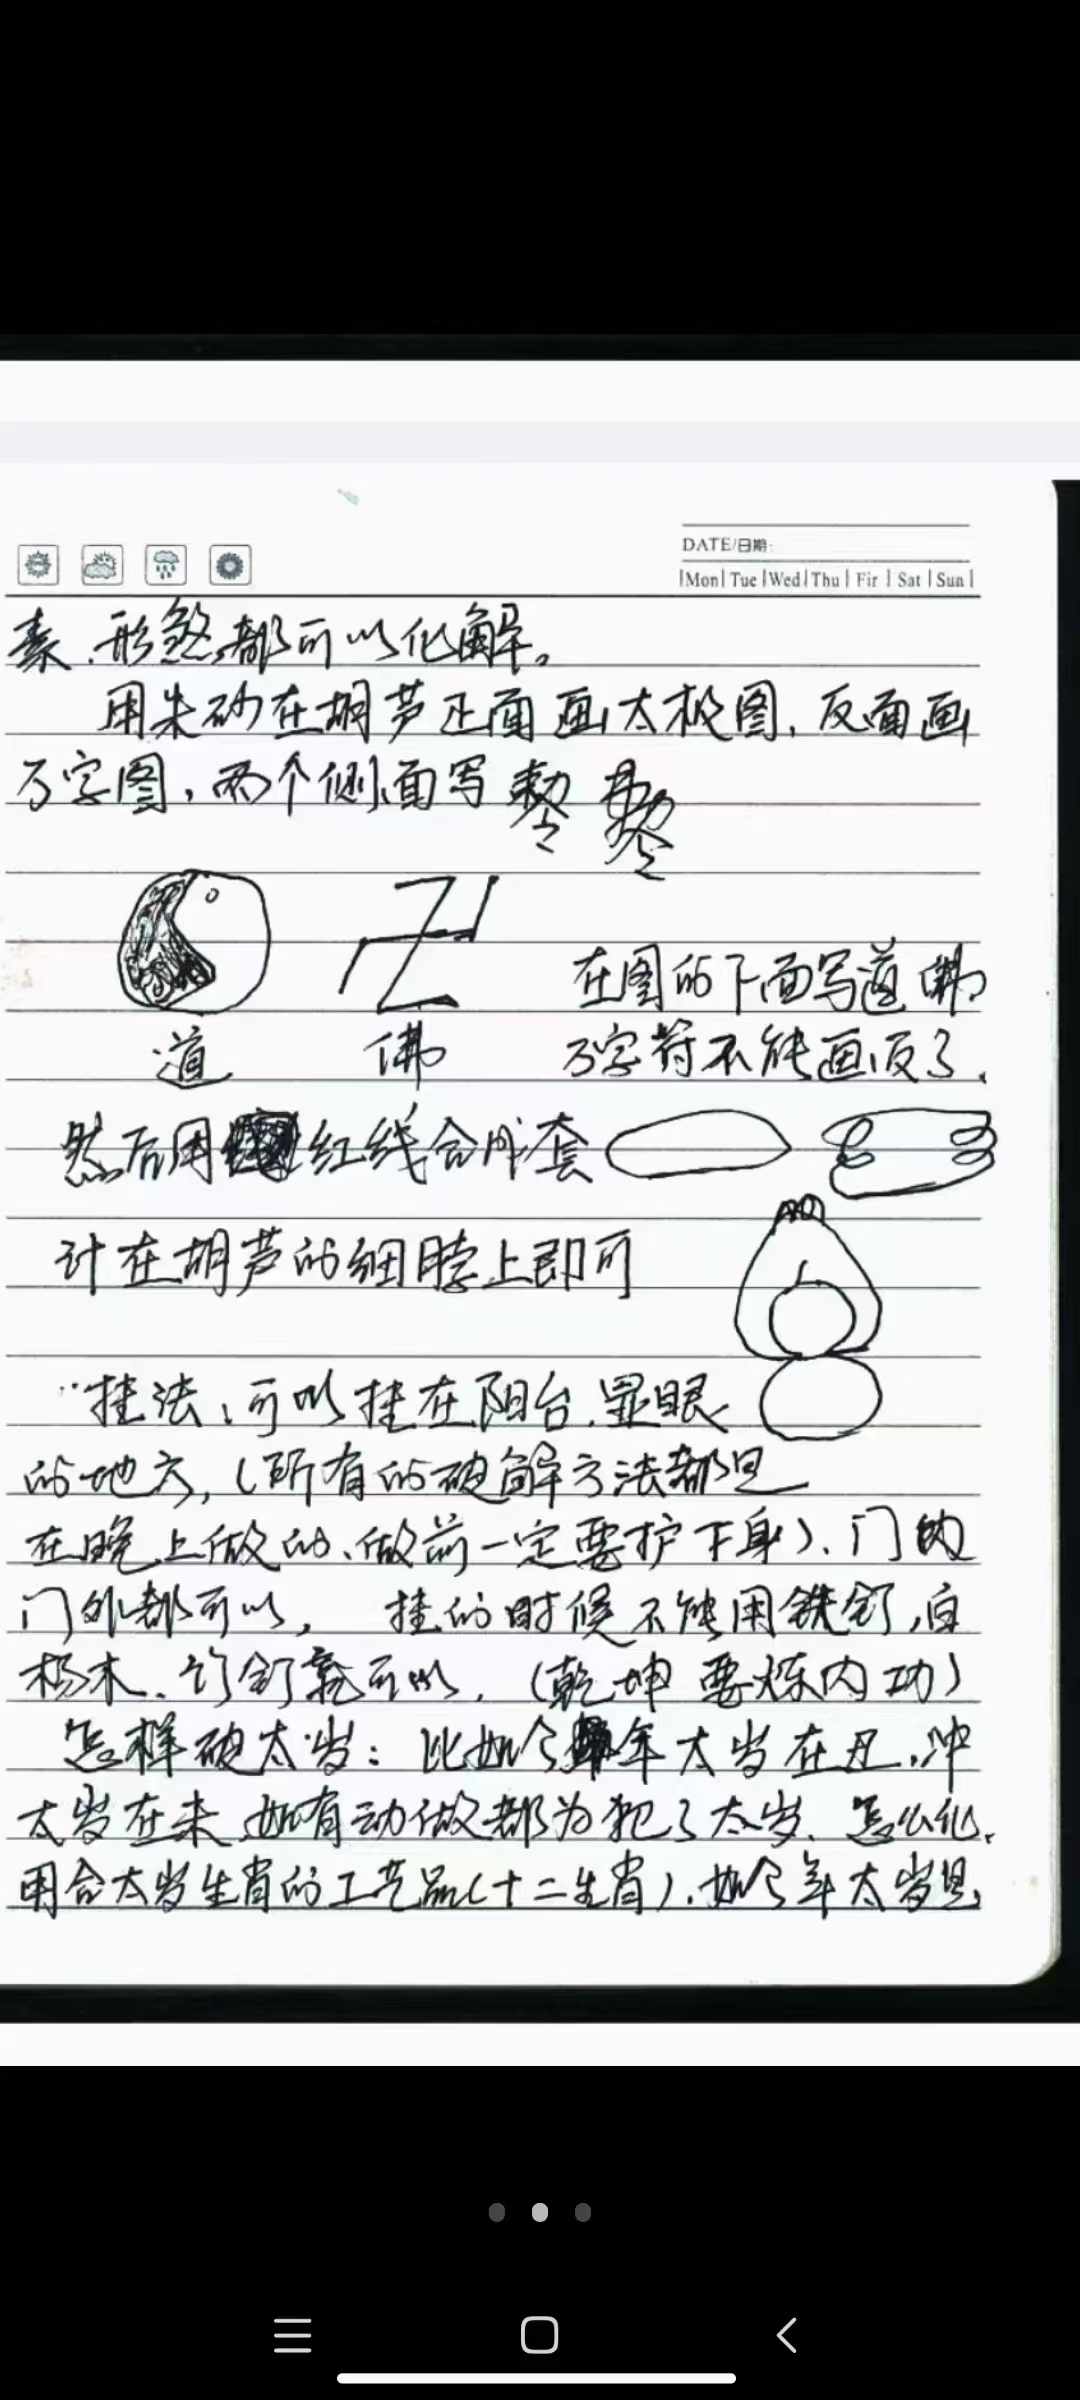 DATE/日期:
Mon Tue Wed Thu Fir Sat Sun
素、形煞都可以化解。
用朱砂在胡芦正面画太极图，反面画
万字图，两个侧面写
卍
在图的下面写道佛
道 佛 万字符不能画反了、
然后用红线合成套
计在胡芦的细脖上即可
挂法：可以挂在阳台、显眼
的地方，（所有的破解方法都是
在晚上做的、做前一定要护下身）、门内
门外都可以， 挂的时候不能用铁钉，白
杨木、竹钉就可以，（乾坤要炼内功）
怎样破太岁：比如今年太岁在丑，冲
太岁在未，如有动做都为犯了太岁、怎么化、
用合太岁生肖的工艺品（十二生肖）、如今年太岁是